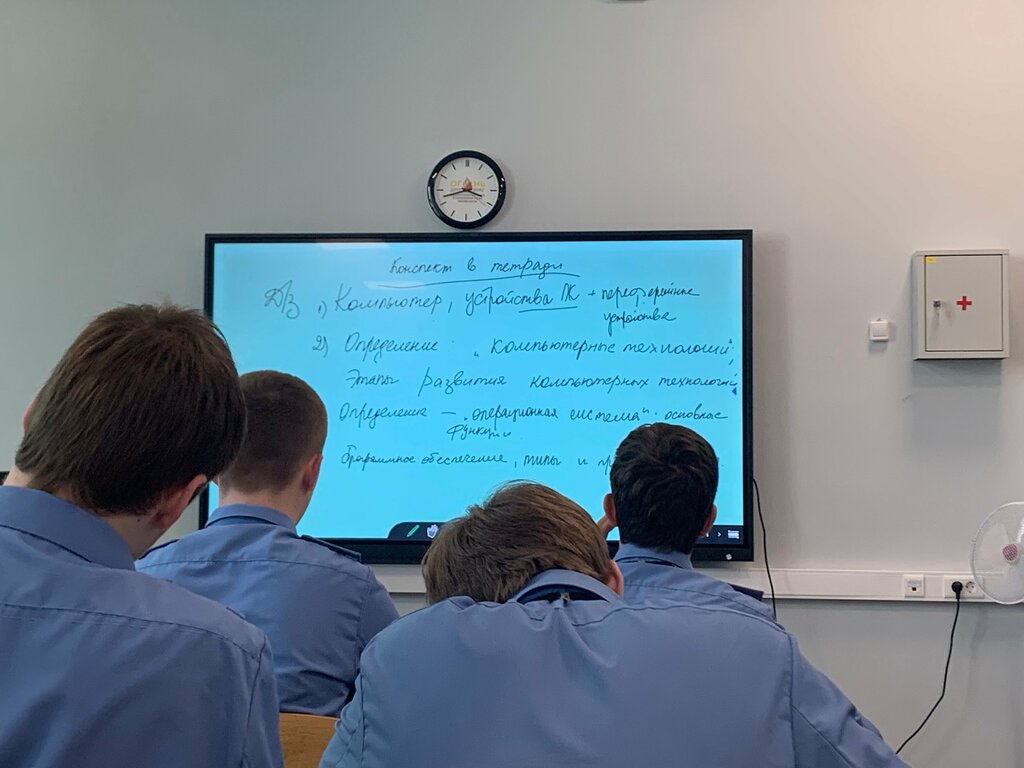 ОГОНЬ
Конспект в тетради
Д/З 1) Компьютер, устройства ПК + переферийные
устройства
2) Определение "компьютерные технологии";
Этапы развития компьютерных технологий
Определение — "операционная система". основные
функции
Программное обеспечение, типы и